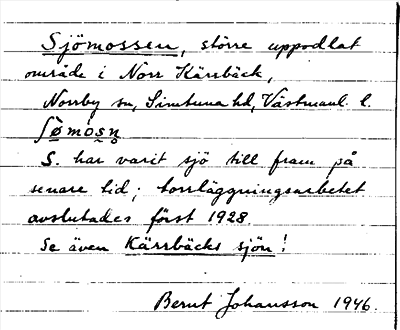 Sjömossen, större uppodlat
område i Norr Kärrbäck,
Norrby sn, Simtuna hd, Västmanl. l.
ʃø̀mòsn̥
S. har varit sjö till fram på
senare tid; torrläggningsarbetet
avslutades först 1928.
Se även Kärrbäcks sjön!
Bernt Johansson 1946.